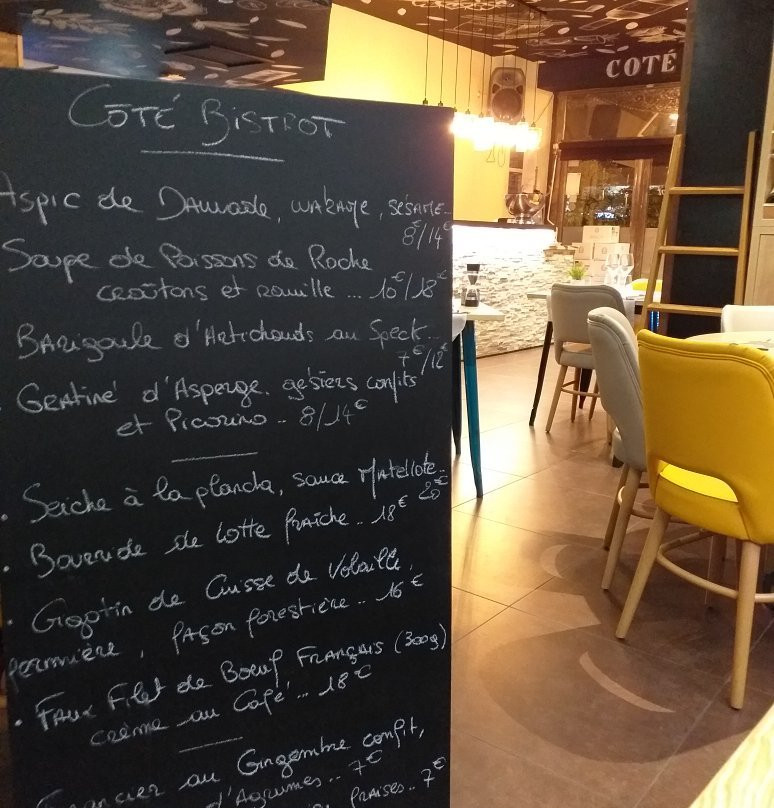 CÔTÉ BISTROT
Aspic de Daurade, wakamé, sésame..
8€/14€
Soupe de Poissons de Roche
croûtons et rouille ... 10€/18€
Barigoule d'Artichauds au Speck..
7€/12€
Gratiné d'Asperge. gésiers confits
et Picorino .. 8/14€
• Seiche à la plancha, sauce Matelote..
20€
• Bourride de lotte fraîche .. 18€
• Gigotin de Cuisse de Volaille,
fermière, façon forestière .. 16€
• Faux Filet de Boeuf Français (300g)
crème au Café ... 18€
Financier au Gingembre confit,
d'Agrumes .. 7€
fraises .. 7€
COTÉ